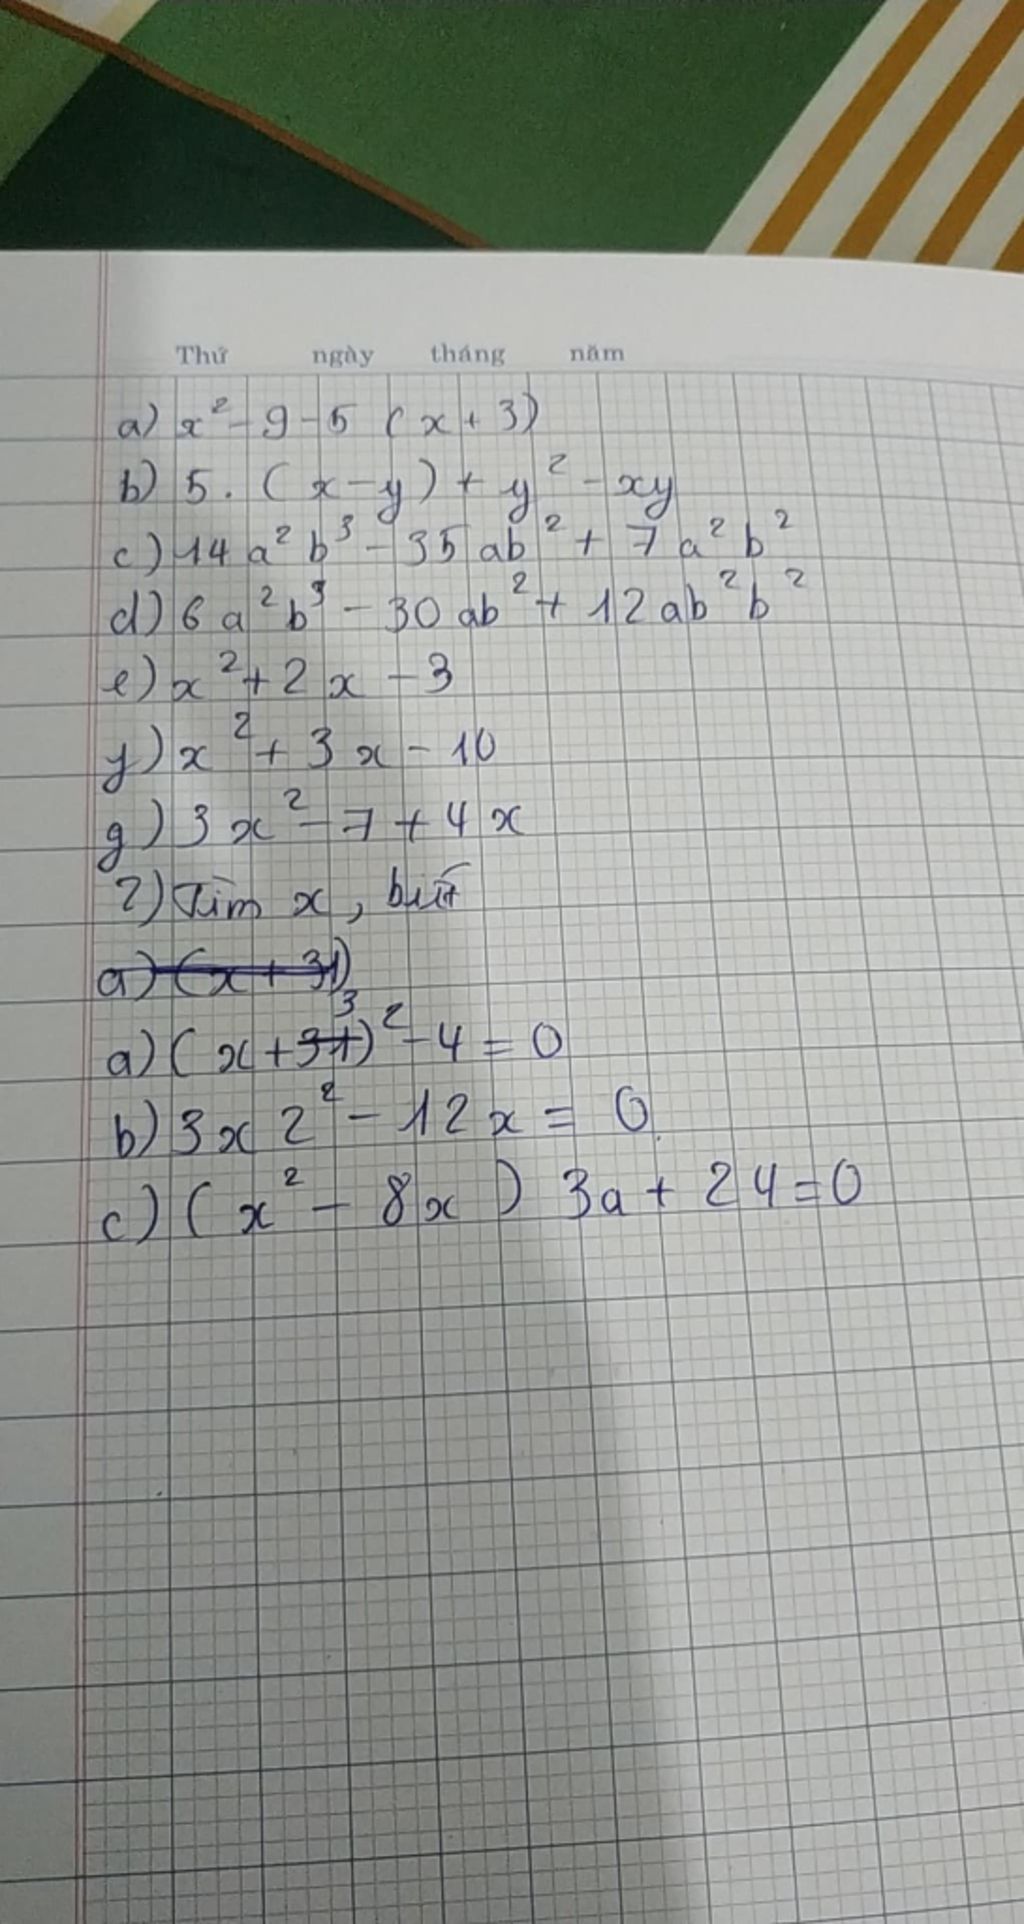 Thứ ngày tháng năm
a) x² - 9 - 5 (x + 3)
b) 5 . (x - y) + y² - xy
c) 14 a² b³ - 35 ab² + 7 a² b²
d) 6 a² b³ - 30 ab² + 12 ab² b²
e) x² + 2x - 3
y) x² + 3x - 10
g) 3x² - 7 + 4x
2) Tìm x, biết
a) (x + 31)
a) (x + 3)² - 4 = 0
b) 3x 2² - 12x = 0
c) (x² - 8x) 3a + 24 = 0